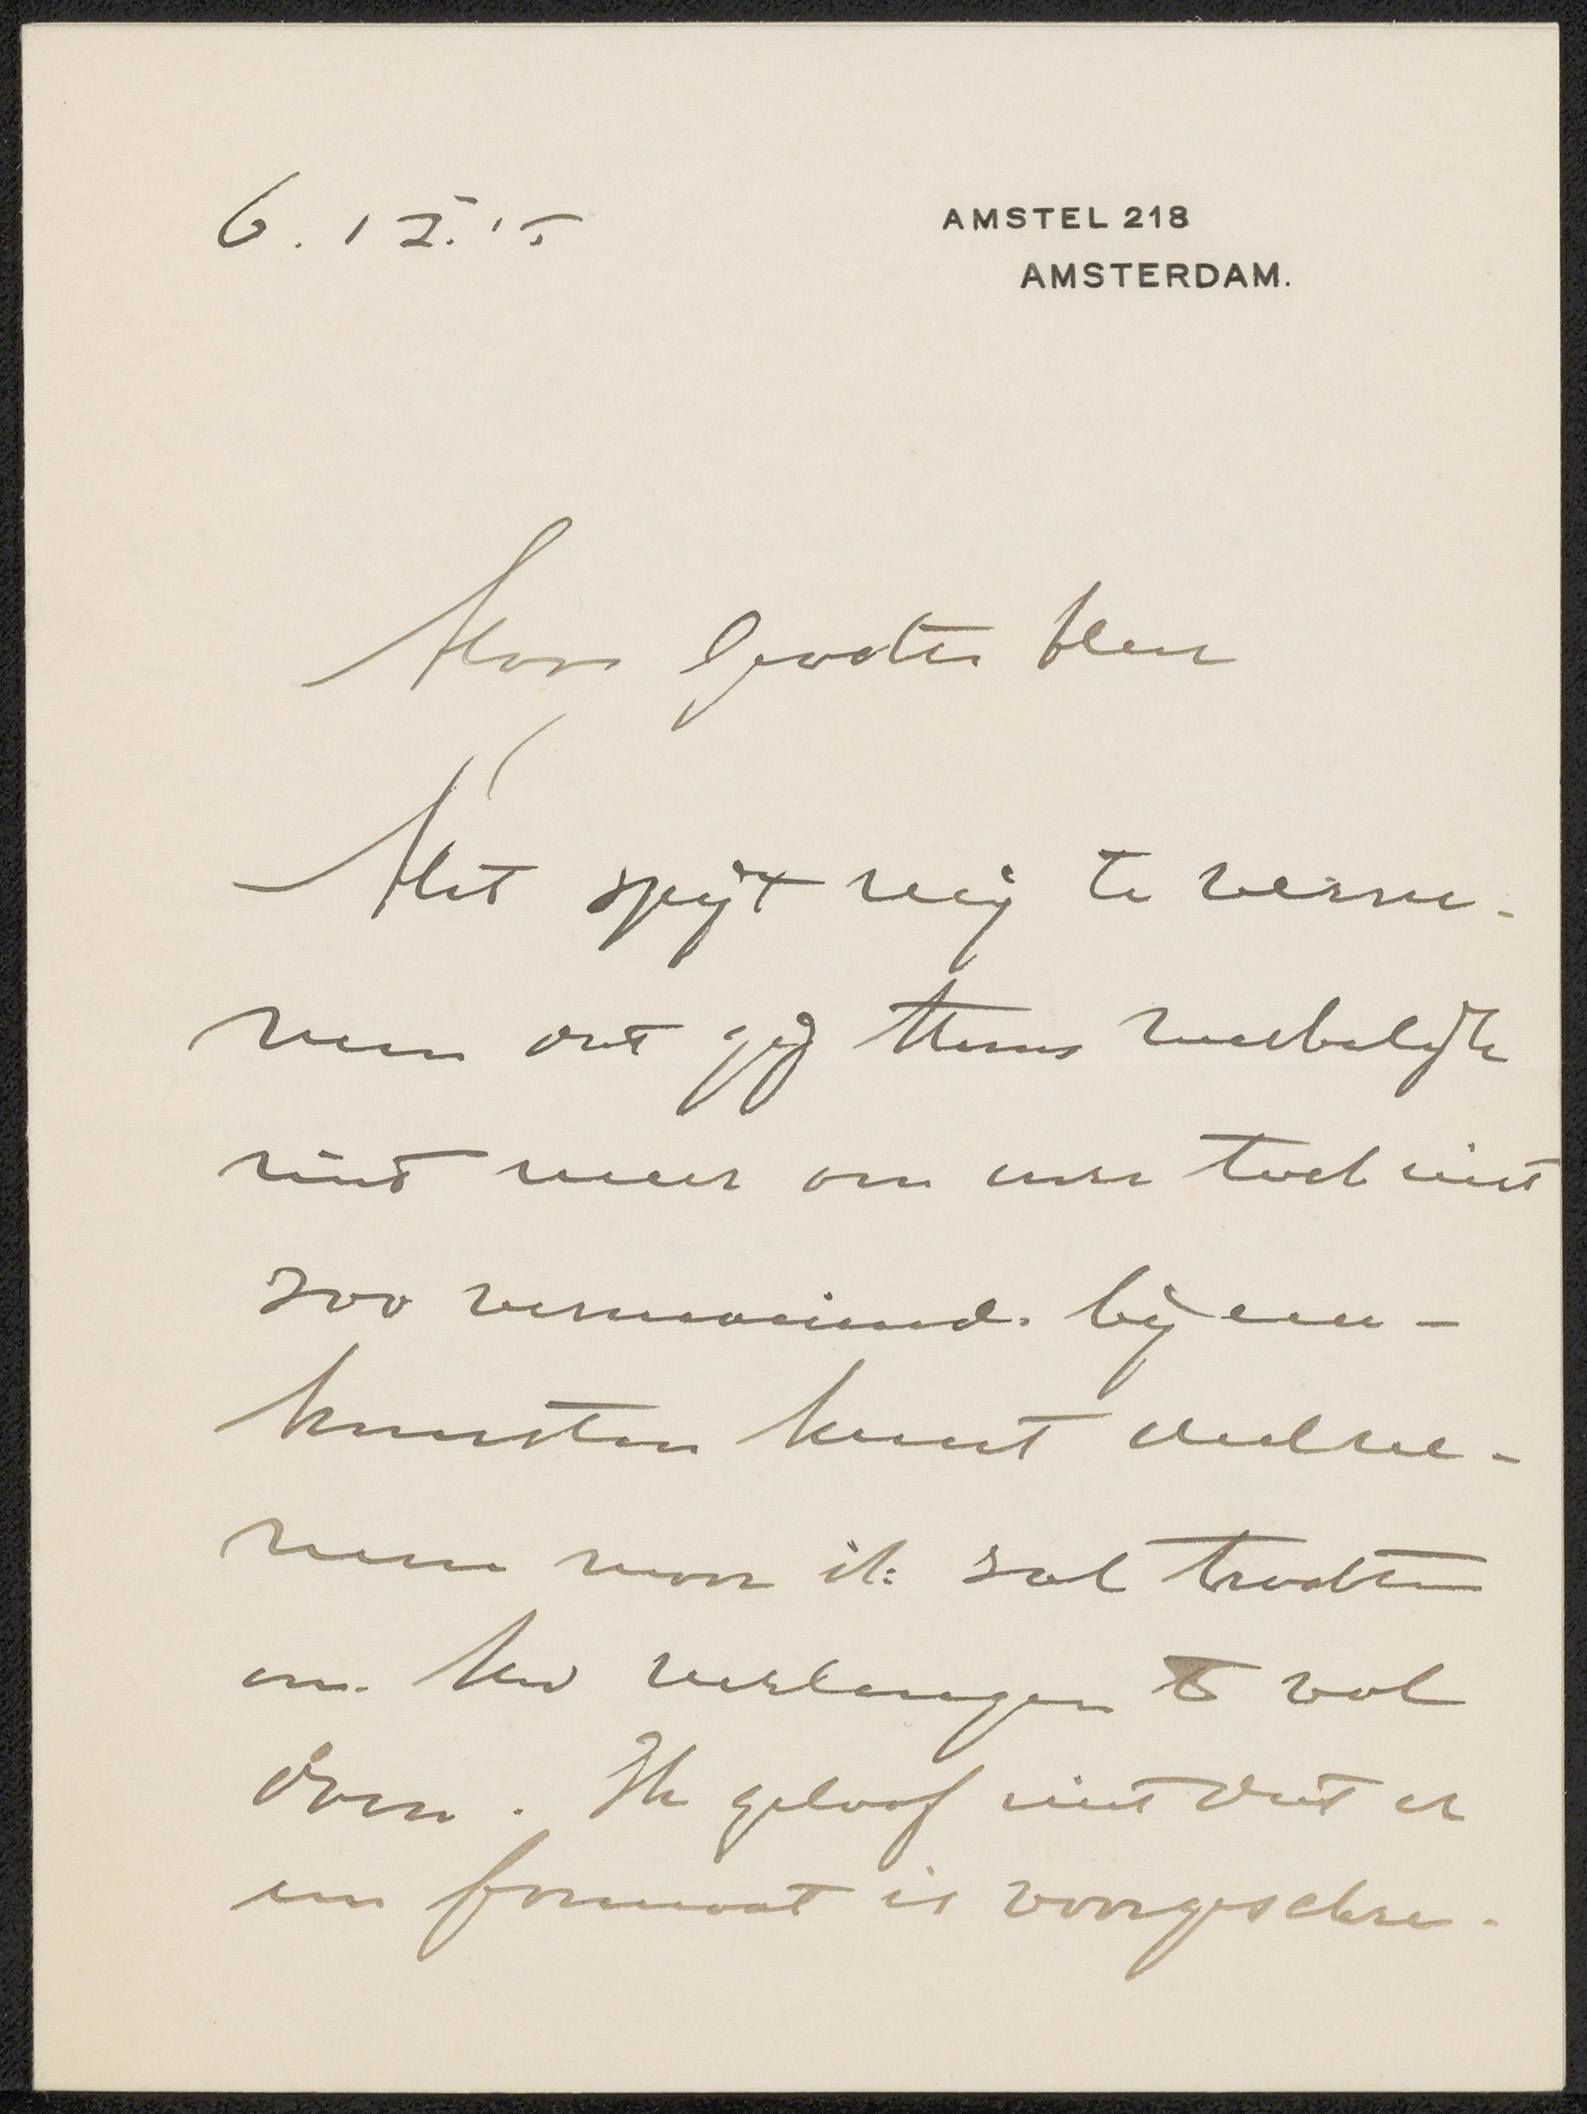 6.12.'15
AMSTEL 218
AMSTERDAM.
Hoog Geachte Heer
Het spijt mij te verne-
men dat gij thans
niet meer om toch niet
zoo vermoeiend. bijeen-
komsten kunt deelne-
men maar ik zal trachten
om Uw verlangen te vol
doen. Ik geloof niet dat er
een formaat is voorgeschre-